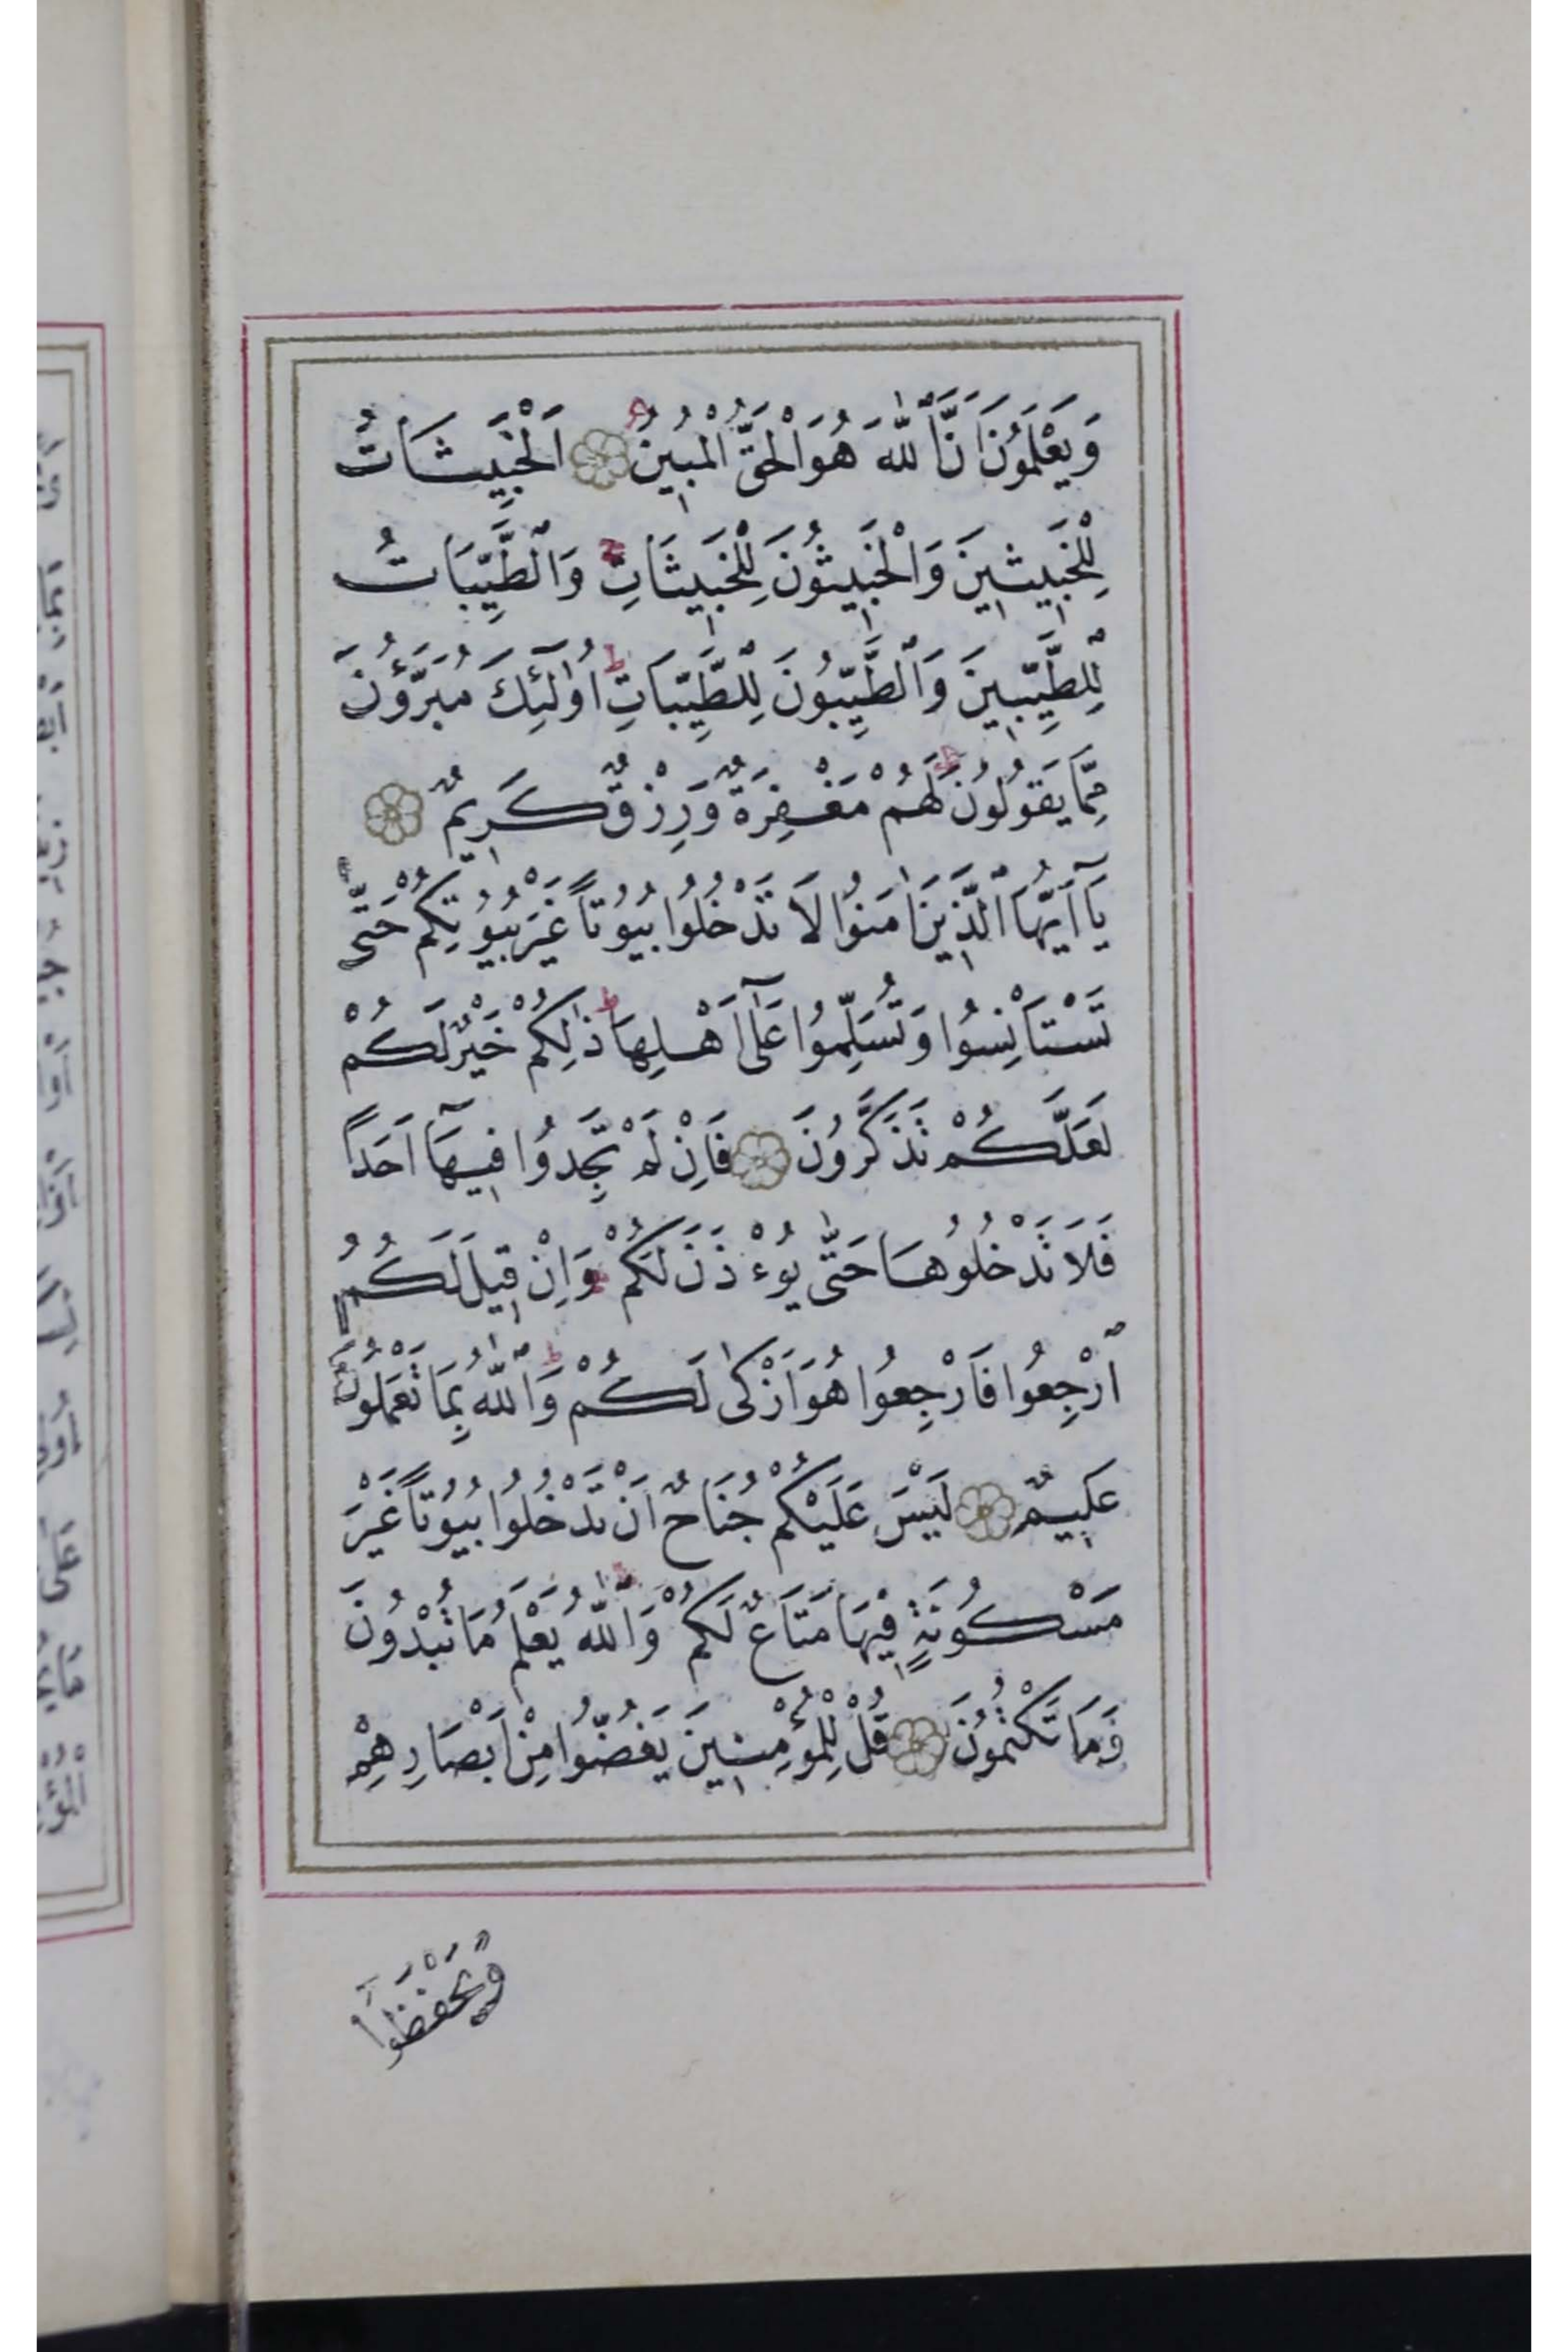 وَيَعْلَمُونَ اَنَّ ٱللّٰهَ هُوَ الْحَقُّ الْمُبِينُ اَلْخَبِيثَاتُ
لِلْخَبِيثِينَ وَالْخَبِيثُونَ لِلْخَبِيثَاتِ ج وَالطَّيِّبَاتُ
لِلطَّيِّبِينَ وَالطَّيِّبُونَ لِلطَّيِّبَاتِ ط اُولٰٓئِكَ مُبَرَّؤُنَ
مِمَّا يَقُولُونَ ط لَهُمْ مَغْفِرَةٌ وَرِزْقٌ كَرِيمٌ
يَآ اَيُّهَا ٱلَّذِينَ اٰمَنُوا لَا تَدْخُلُوا بُيُوتًا غَيْرَ بُيُوتِكُمْ حَتّٰى
تَسْتَاْنِسُوا وَتُسَلِّمُوا عَلٰٓى اَهْلِهَا ط ذٰلِكُمْ خَيْرٌ لَكُمْ
لَعَلَّكُمْ تَذَكَّرُونَ فَاِنْ لَمْ تَجِدُوا فِيهَآ اَحَدًا
فَلَا تَدْخُلُوهَا حَتّٰى يُوءْذَنَ لَكُمْ وَاِنْ قِيلَ لَكُمُ
ٱرْجِعُوا فَارْجِعُوا هُوَ اَزْكٰى لَكُمْ ط وَٱللّٰهُ بِمَا تَعْمَلُونَ
عَلِيمٌ لَيْسَ عَلَيْكُمْ جُنَاحٌ اَنْ تَدْخُلُوا بُيُوتًا غَيْرَ
مَسْكُونَةٍ فِيْهَا مَتَاعٌ لَكُمْ ط وَٱللّٰهُ يَعْلَمُ مَا تُبْدُونَ
وَمَا تَكْتُمُونَ قُلْ لِلْمُؤْمِنِينَ يَغُضُّوا مِنْ اَبْصَارِهِمْ
وَيَحْفَظُوا